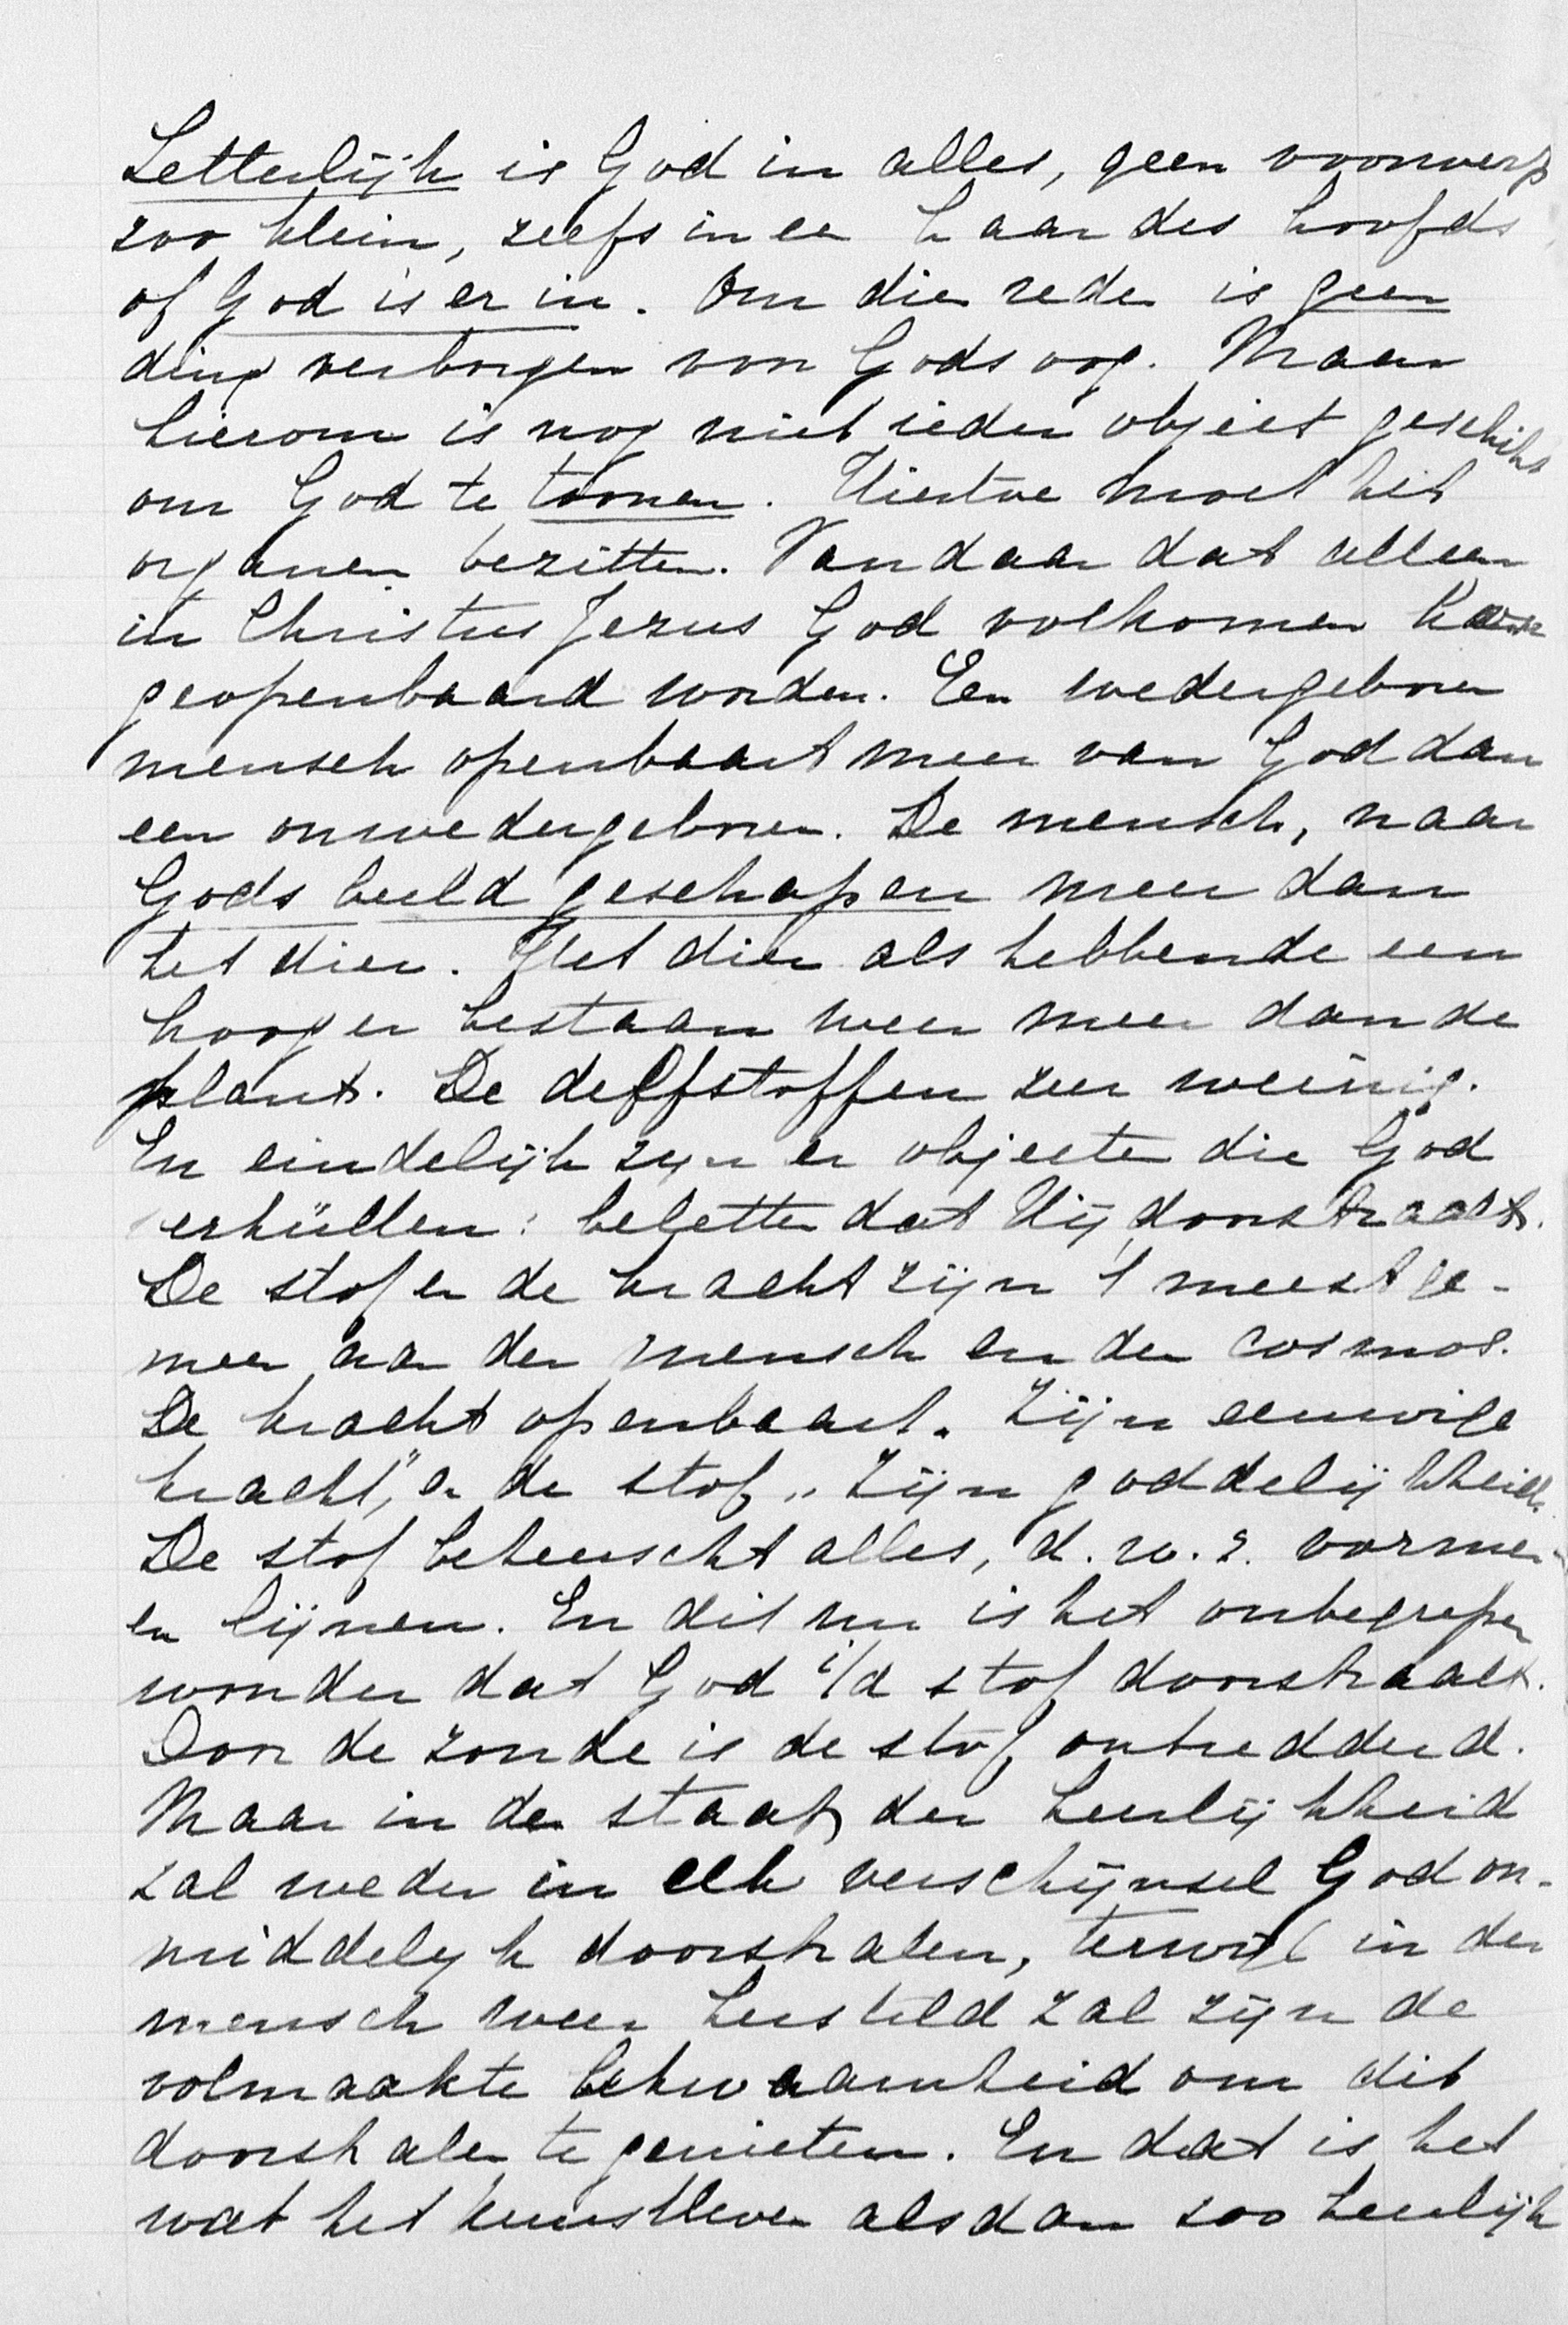 Letterlijk is God in alles, geen voorwerp
zoo klein, zelfs in en haar des hoofds
of God is er in. Om die reden is geen
ding verborgen voor Gods oog. Maar
hierom is nog niet ieder object geschikt
om God te toonen. Hiertoe moet het
organen bezitten. Vandaar dat alleen
in Christus Jezus God volkomen kon
geopenbaard worden. Een wedergeboren
mensch openbaart meer van God dan
een onwedergeboren. De mensch, naar
Gods beeld geschapen meer dan
het dier. Het dier als hebbende een
hooger bestaan weer meer dan de
plant. De delfstoffen zeer weinig.
En eindelijk zijn er objecten die God
verhüllen: beletten dat Hij doorstraalt.
De stof en de kracht zijn 't meest ge-
meen aan den mensch en den cosmos.
De kracht openbaart „Zijn eeuwige
kracht", en de stof „Zijn goddelijkheid.
De stof beheerscht alles, d.w.z. vormen
en lijnen. En dit nu is het onbegrepen
wonder dat God i/d stof doorstraalt.
Door de zonde is de stof ontredderd.
Maar in den staat der heerlijkheid
zal weder in elk verschijnsel God on-
middelijk doorstralen, terwijl in den
mensch weer hersteld zal zijn de
volmaakte bekwaamheid om dit
doorstralen te genieten. En dat is het
wat het kunstleven alsdan zoo heerlijk